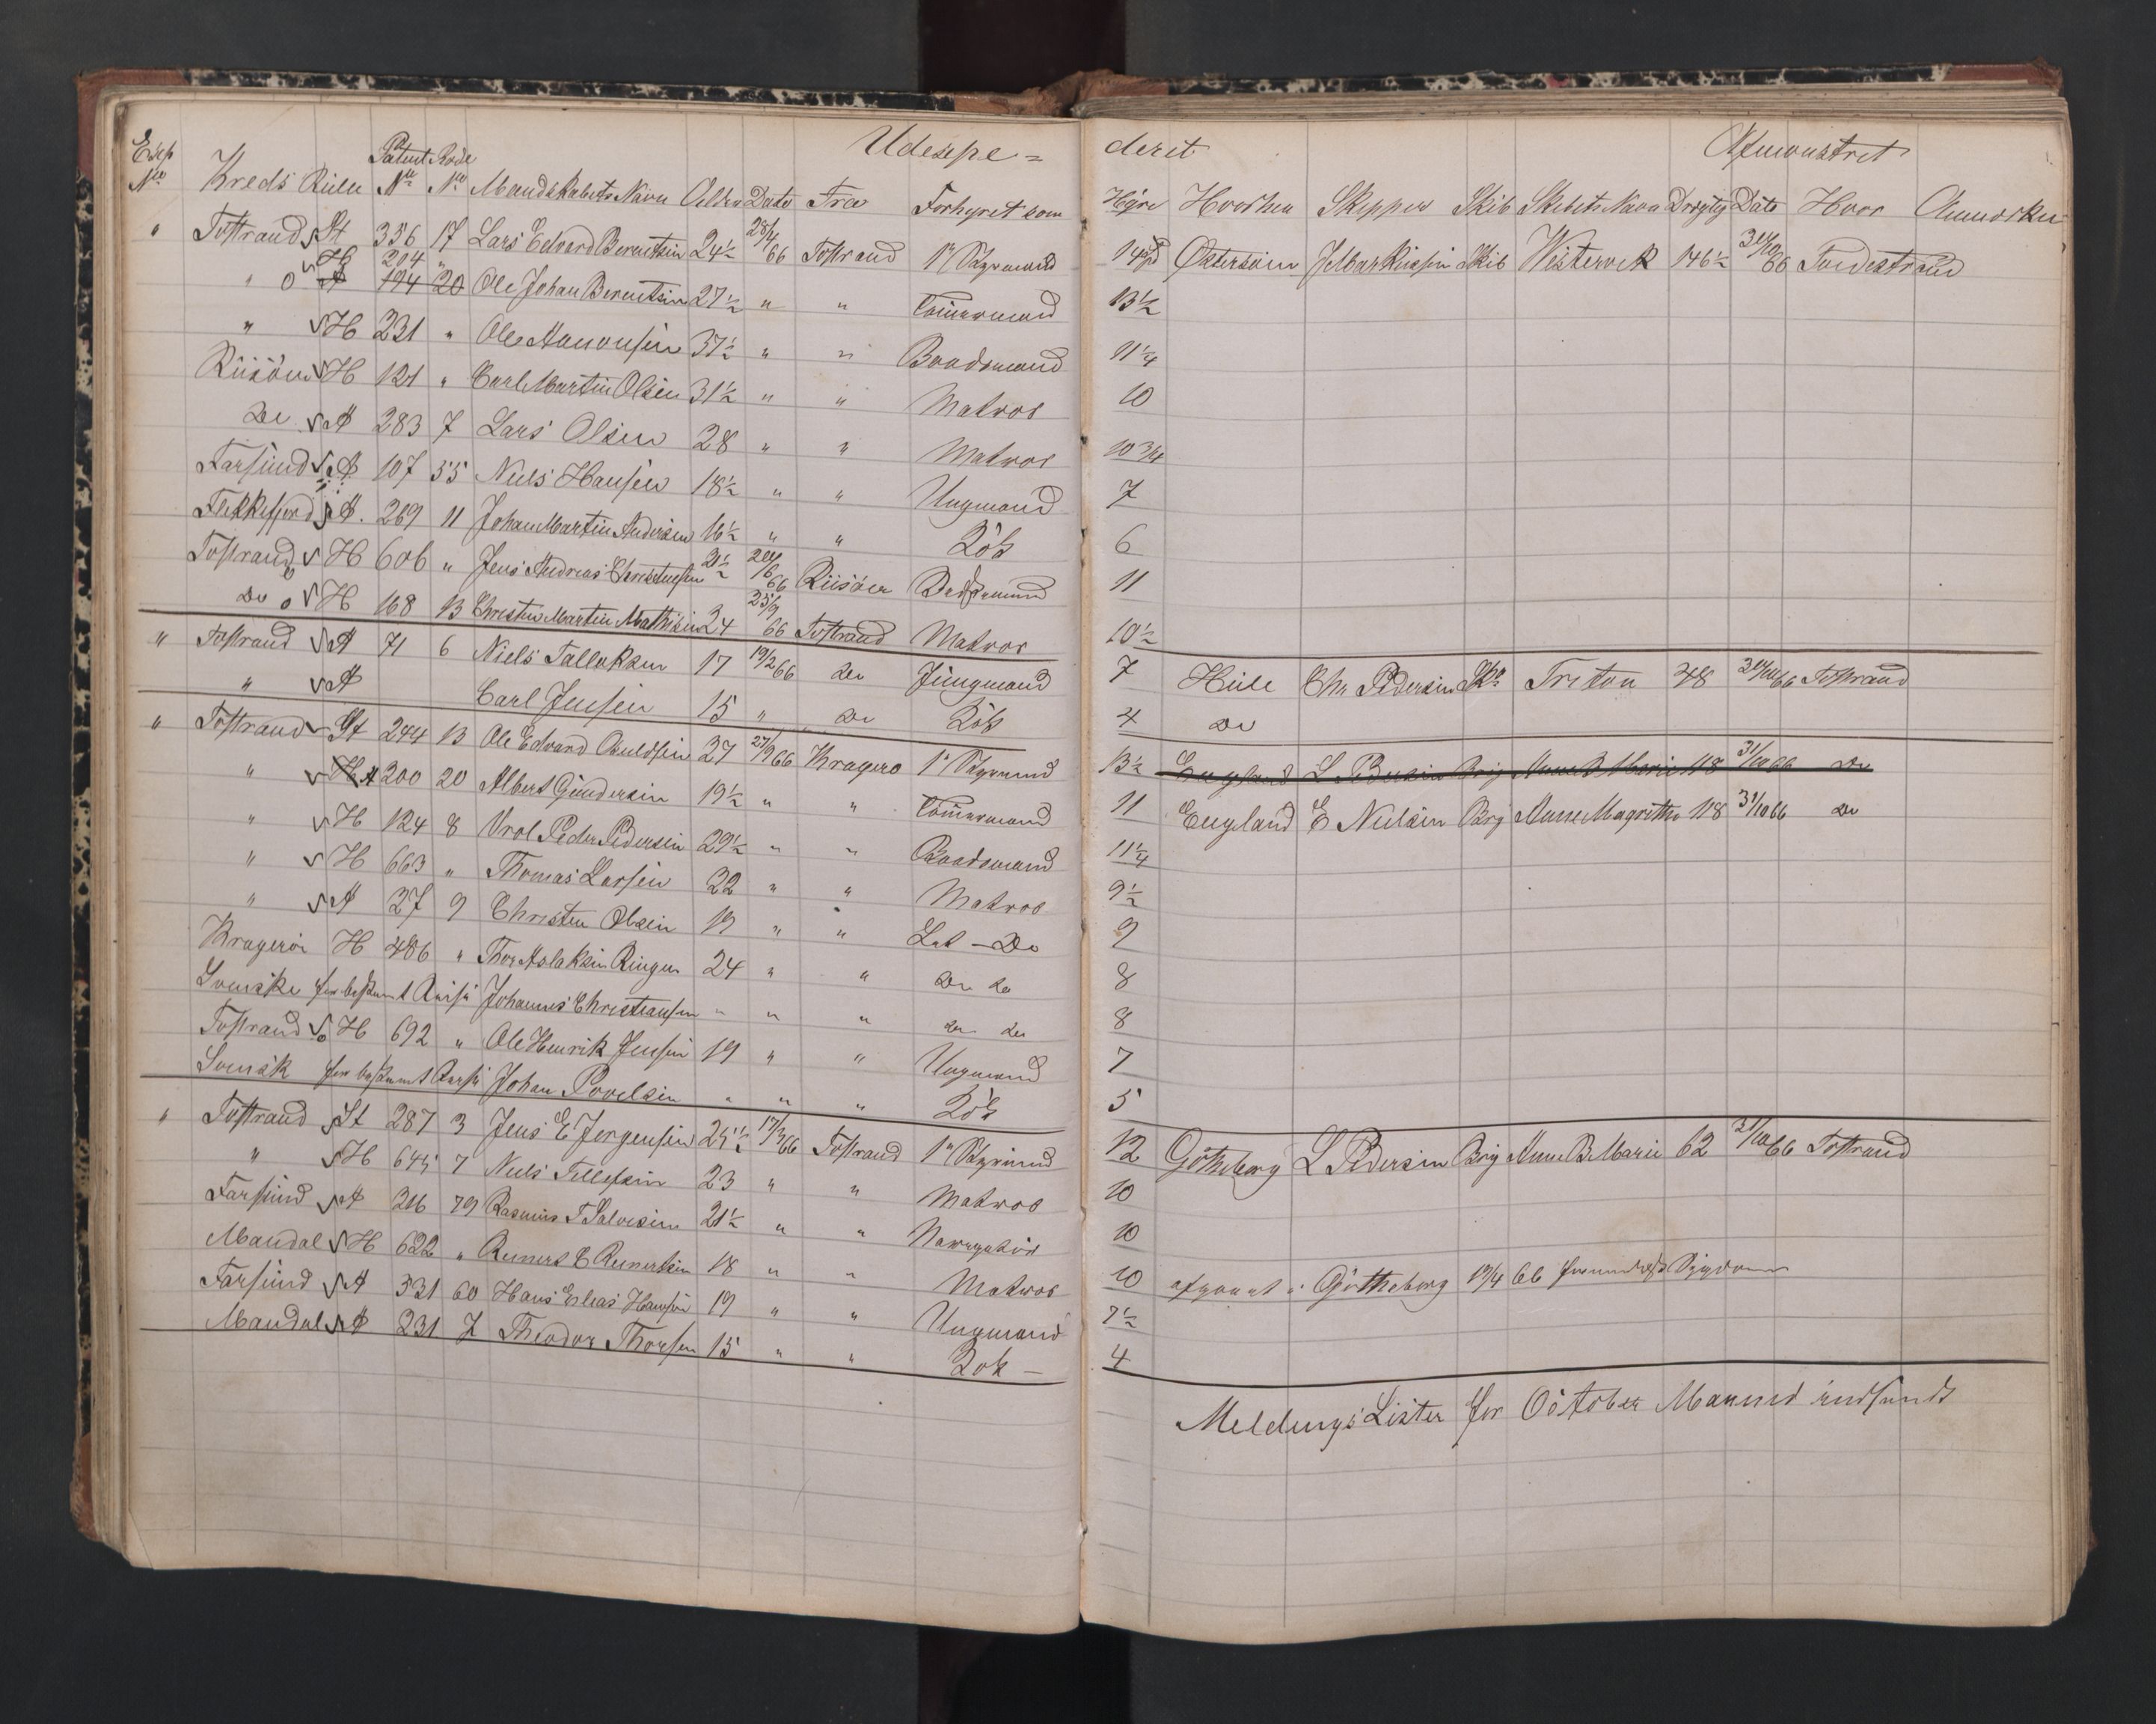 Exp Patent Rode Udexpe = deret Afmønstret
No Kreds Rulle No No Mandskabets Navn Alder Dato Fra Forhyret som Hyre Hvorhen Skipper Skib Skibets Navn Drægtg Dato Hvor Anmærkn
" Tvstrand St 356 17 Lars Edvard Berentsen 24½ 28/4 66 Tvstrand 1ste Styrmand 14 Spd Østersøen Skib Westervik 146½ 66 Tvedestrand
" H 204 " A 194 20 Ole Johan Berentsen 27½ " " Tømmermand 13½
" H 231 " Ole Aanonsen 37½ " " Baadsmand 11¼
Riisöer H 121 " Carl Martin Olsen 31½ " " Matros 10
Do A 283 7 Lars Olsen 28 " " Matros 10 3/4
Farsund A 107 55 Niels Hansen 18½ " " Ungmand 7
Flekkefjord A. 269 11 Johan Martin Andersen 16½ " " Kok 6
Tvstrand H 606 " Jens Andreas Christensen 21½ 66 Riisöer 11
Do H 168 13 Christen Martin Mathisen 24 25/9 66 Tvstrand Matros 10½
" Tvstrand A 71 6 Niels Tallaksen 17 19/2 66 do Jungmand 7 Chr Pedersen Skr Triton 48 66 Tvstrand
" A Carl Jensen 15 " Do Kok 4 Do
" Tvstrand St 244 13 Ole Edvard Auldsen 27 66 Kragerø 1ste Styrmand 13½ England L Pedersen Brig Anne B Marie 118 31/10 66 Do
" H A 200 20 Albert Gundersen 19½ " " Tømmermand 11 England E Nielsen Brig Anne Magrethe 118 31/10 66 Do
" H 124 8 Peder Pedersen 29½ " " Baadsmand 11¼
" H 663 " Thomas Larsen 22 " " Matros 9½
" A 27 9 Christen Olsen 19 " " Let - Do 9
Kragerøe H 486 " Thor Aslaksen Ringen 24 " " Do do 8
Svenske for bestemt Reise Johannes Christiansen " " " do do 8
Tvstrand H 692 " Ole Henrik Jensen 19 " " Ungmand 7
Svensk for bestemt Reise Johan Povelsen " " " Kok 5
" Tvstrand St 287 3 Jens E Jørgensen 25½ 17/3 66 Tvstrand 1ste Styrmand 12 Gøtheborg L Pedersen Brig Anne B Marie 62 31/10 66 Tvstrand
" H 645 7 Niels Tellefsen 23 " " Matros 10
Farsund A 206 79 Rasmus T Salvesen 21½ " " 10
Mandal H 622 " Reinert E Reinertsen 18 " " Matros 10 afgaaet i Gøtheborg 19/4 66 Sygdom
Farsund A 331 60 Hans Elias Hansen 19 " " Ungmand 7½
Mandal A 231 7 Theodor Thorsen 15 " " Kok - 4
Meldings Lister for October Maaned indsendt